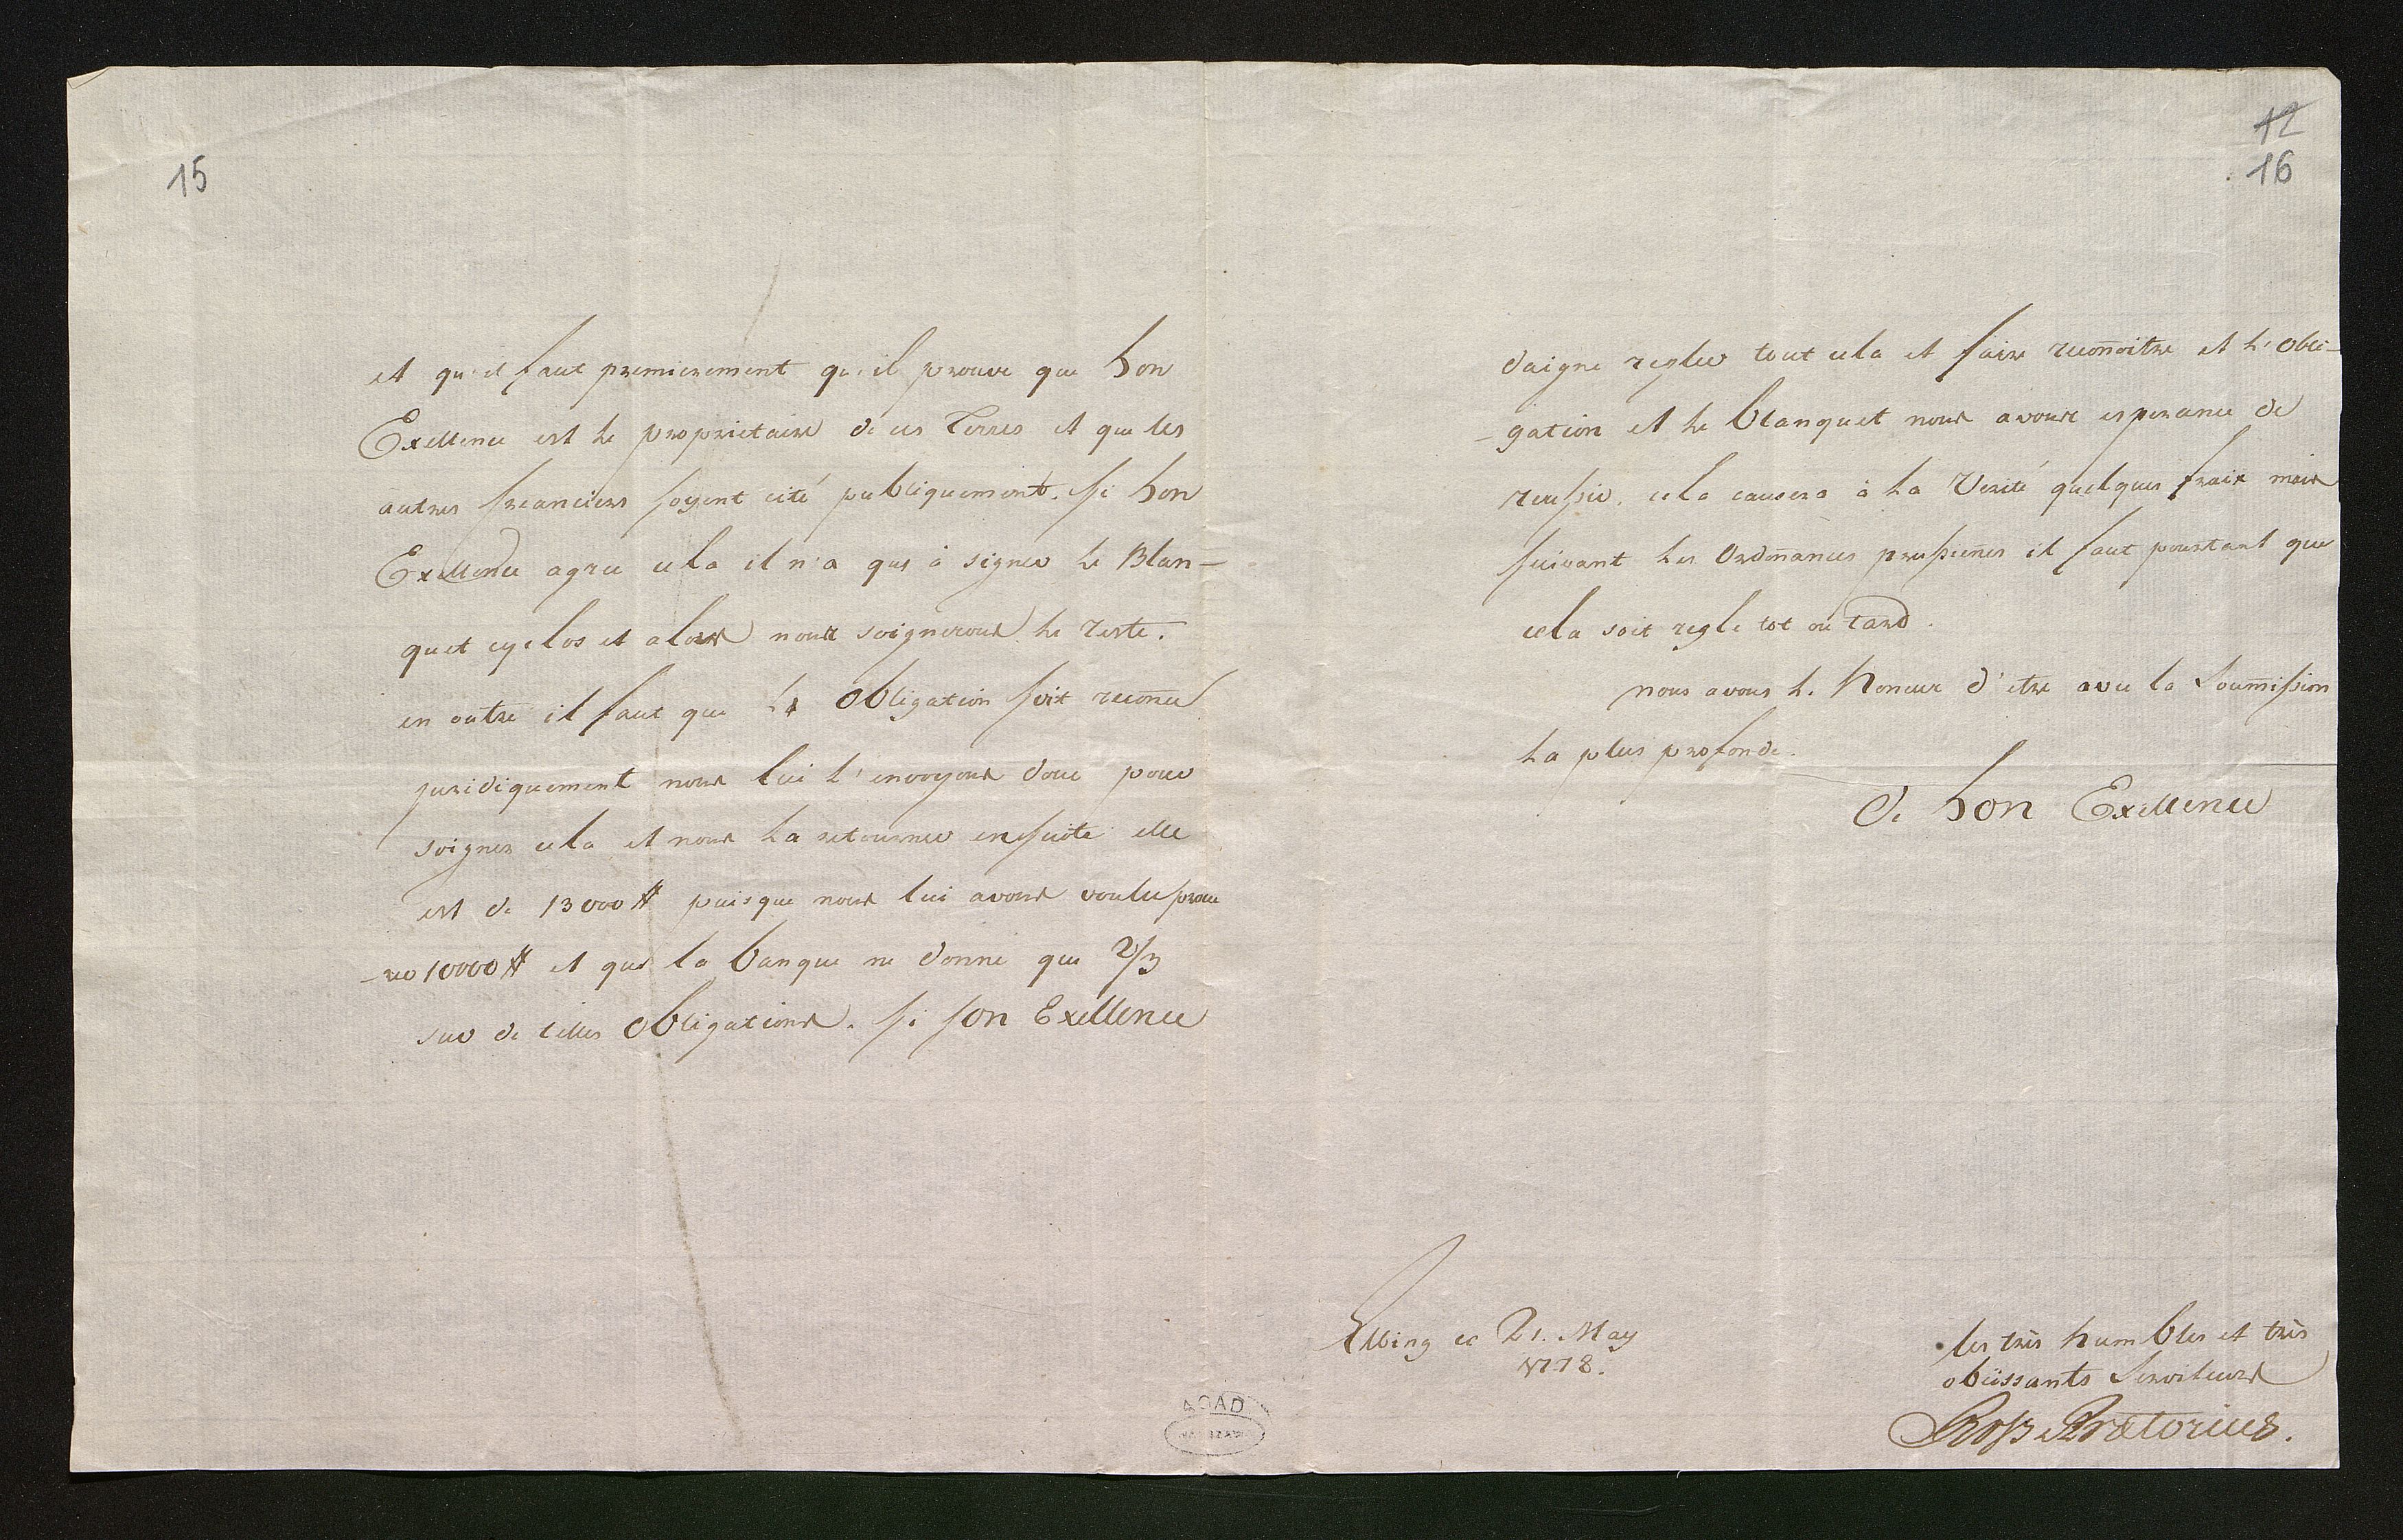 15
et qu'il faut premierement qu'il prouve que Son
Exellence est le proprietaire de ces Terres et que les
autres creanciers soyent cité publiquement. Si Son
Exellence agree cela il n'a que à signer le Blan-
quet cyclos et alors nous soignerons le reste.
en outre il faut que la Obligation soit reconue
juridiquement nous lui l'envoyons donc pour
soigner cela et nous la retourner ensuite elle
est de 13000 # puisque nous lui avons voulu procu
-rer 10000 # et que la banque ne donne que 2/3
sur de telles Obligations. Si son Exellence
12
16
daigne regler tout cela et faire recoñoitre et l'Obli-
-gation et le Blanquet nous avons esperance de
reussir. cela causera à la Verité quelques fraix mais
suivant les Ordoñances prussieñes il faut pourtant que
cela soit regle tot ou tard.
nous avons l'Honeur d'etre avec la Soumission
la plus profonde.
De Son Exellence
Elbing ce 21. May
1778.
les très humbles et très
obeissants Serviteurs
Ross Prætorius.
AGAD
WARSZAWA